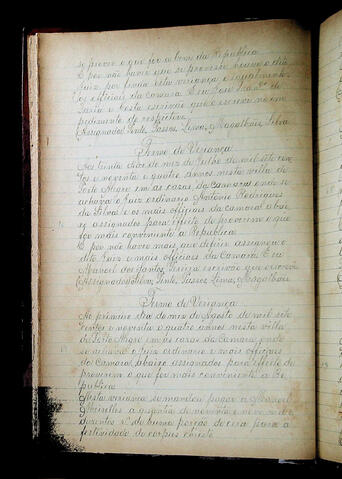 se prover o que for a bem da Republica
E por não haver que se provesse houve o dito
Juiz por finda esta veriança e igualmente
os officiais da camara Eu José Fran.co de
Faria e Costa escrivão que o escrevi no im-
pedimento do respectivo
(Assignados) Pinto, Passos, Lima, Magalhães Silva
Termo de Veriança
Aos trinta dias do mez de Julho de mil sete cen
tos e noventa e quatro annos nesta villa de
Porto Alegre em as casas da Camara onde se
achavão o Juiz ordinario Antonio Rodrigues
da Silva e os mais officiais da camara abai-
xo assignados para effeito de proverem o que
for mais conveniente a Republica
E por não haver mais que deferir assignou o
dito Juiz e mais officiais da Camara Eu
Manoel dos Santos escrivão que o escrevi
(Assignados) Silva, Pinto, Passos, Lima, Magalhães
Termo de Veriança
Ao primeiro dia do mez de Agosto de mil sete
centos e noventa e quatro annos nesta villa
de Porto Alegre em as casas da Camara, onde
se achavão o Juiz ordinario e mais officiais
da Camara abaixo assignados para effeito de
proverem o que for mais conveniente a Re-
publica
Nesta veriança se mandou pagar a Manoel
a quantia de noventa e nove mil e
duzentos r.s de huma porção de cera para a
festividade do corpus christi